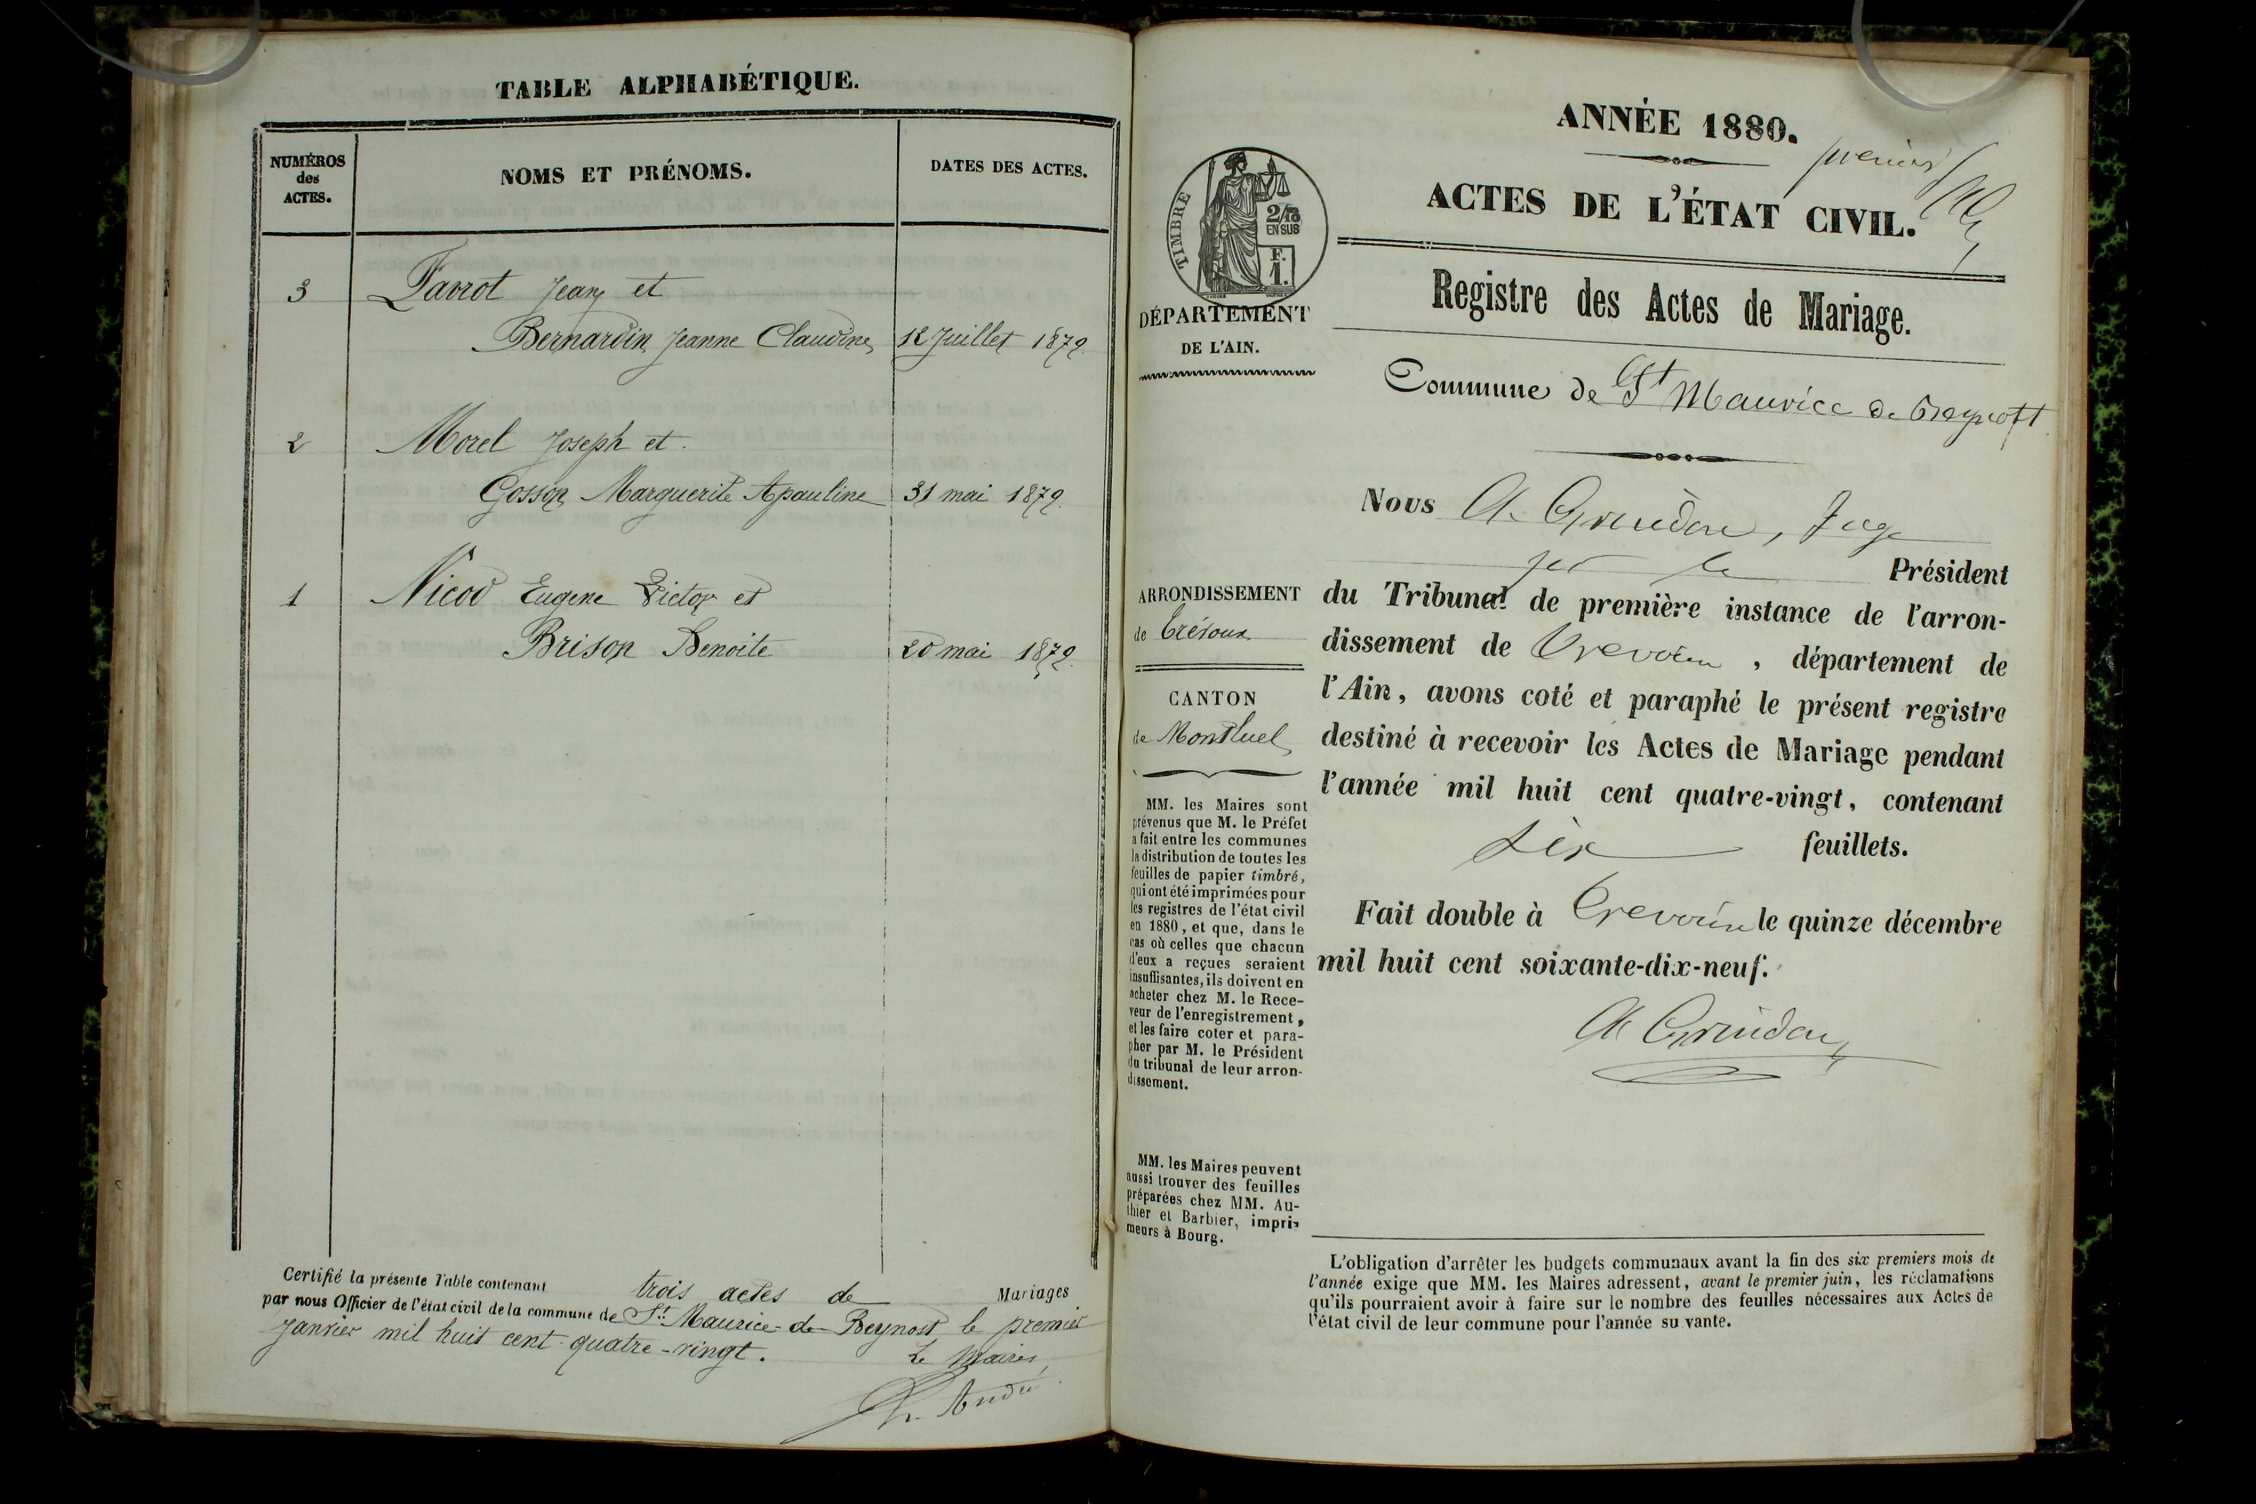 TABLE ALPHABÉTIQUE.
NUMÉROS
des
ACTES.
NOMS ET PRÉNOMS.
DATES DES ACTES.
3
Favrot Jean et
Bernardin Jeanne Claudine
12 Juillet 1879.
2
Morel Joseph et
Gosson Marguerite Apauline
31 mai 1879.
1
Nicod Eugene Victor et
Brison Benoite
20 mai 1879.
Certifié la présente Table contenant trois actes de Mariages
par nous Officier de l'état civil de la commune de St. Maurice-de-Beynost, le premier
Janvier mil huit cent quatre-vingt.
Le Maire,
André
ANNÉE 1880.
premier
ACTES DE L'ÉTAT CIVIL.
TIMBRE
2/10
EN SUS
F.
1.
DÉPARTEMENT
DE L'AIN.
Registre des Actes de Mariage.
Commune de St Maurice de Beynost
Nous A. Grindon, Juge
le Président
du Tribunal de première instance de l'arron-
dissement de Trévoux, département de
l'Ain, avons coté et paraphé le présent registre
destiné à recevoir les Actes de Mariage pendant
l'année mil huit cent quatre-vingt, contenant
six feuillets.
Fait double à Trévoux le quinze décembre
mil huit cent soixante-dix-neuf.
A Grindon
ARRONDISSEMENT
de Trévoux
CANTON
de Montluel
MM. les Maires sont
prévenus que M. le Préfet
a fait entre les communes
la distribution de toutes les
feuilles de papier timbré,
qui ont été imprimées pour
les registres de l'état civil
en 1880, et que, dans le
cas où celles que chacun
d'eux a reçues seraient
insuffisantes, ils doivent en
acheter chez M. le Rece-
veur de l'enregistrement,
et les faire coter et para-
pher par M. le Président
du tribunal de leur arron-
dissement.
MM. les Maires peuvent
aussi trouver des feuilles
préparées chez MM. Au-
thier et Barbier, impri-
meurs à Bourg.
L'obligation d'arrêter les budgets communaux avant la fin des six premiers mois de
l'année exige que MM. les Maires adressent, avant le premier juin, les réclamations
qu'ils pourraient avoir à faire sur le nombre des feuilles nécessaires aux Actes de
l'état civil de leur commune pour l'année su vante.